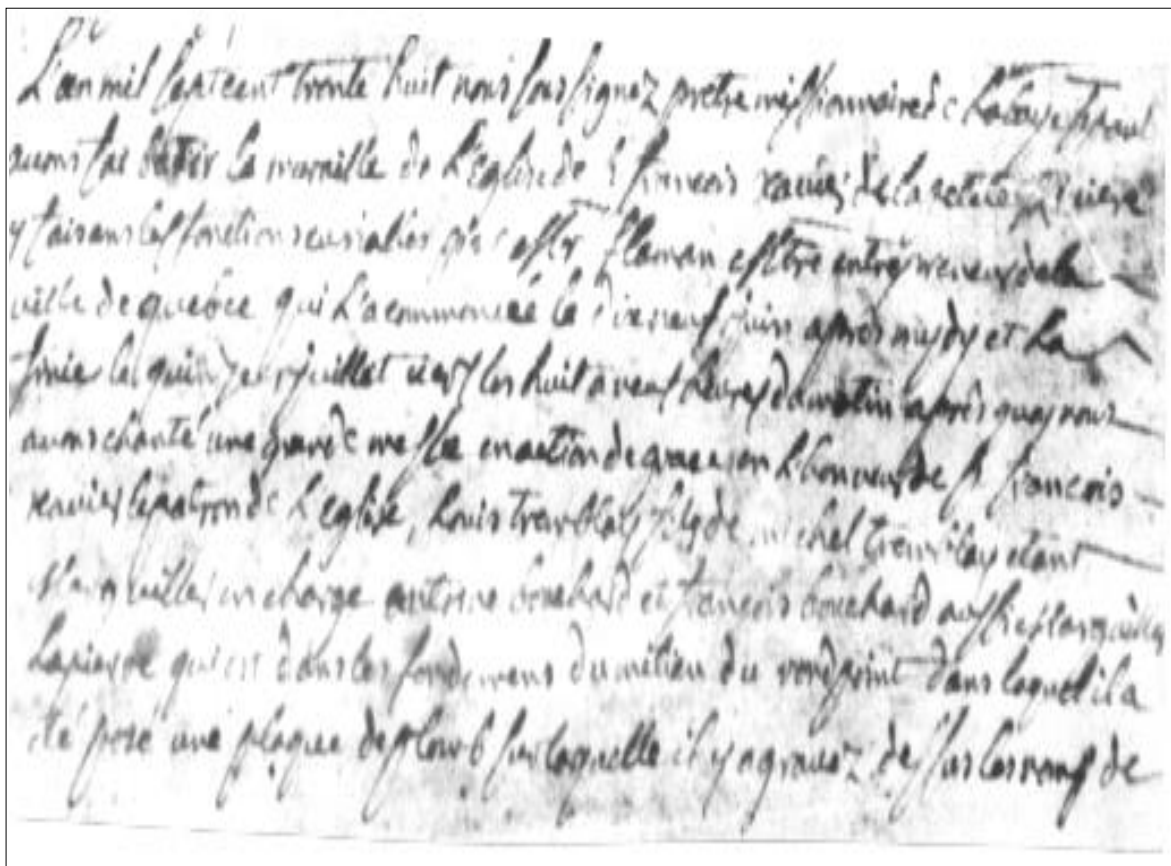 L'an mil sept cent trente huit nous sous signez pretre missionnaire de La baye St paul
avons fait batir la muraille de L'Eglise de St françois xavier de la petite Riviere
y faisans les fonctions curialles par flaman entrepreneur de la
ville de quebec qui L'a commencée le Dixneuf juin après mydy et La
finie le quinze juillet vers les huit a neuf heures du matin après quoy nous
avons chanté une grande messe en action de grace en L'honneur de St françois
xavier le patron de L'eglise, Louis tremblay fils de michel tremblay etant
Marguillier en charge antoine bouchard et françois bouchard aussi
La pierre qui est dans les fondemens du milieu du rond point dans laquel il a
été posé une plaque de plomb sur laquelle il y a gravez dessus les noms de